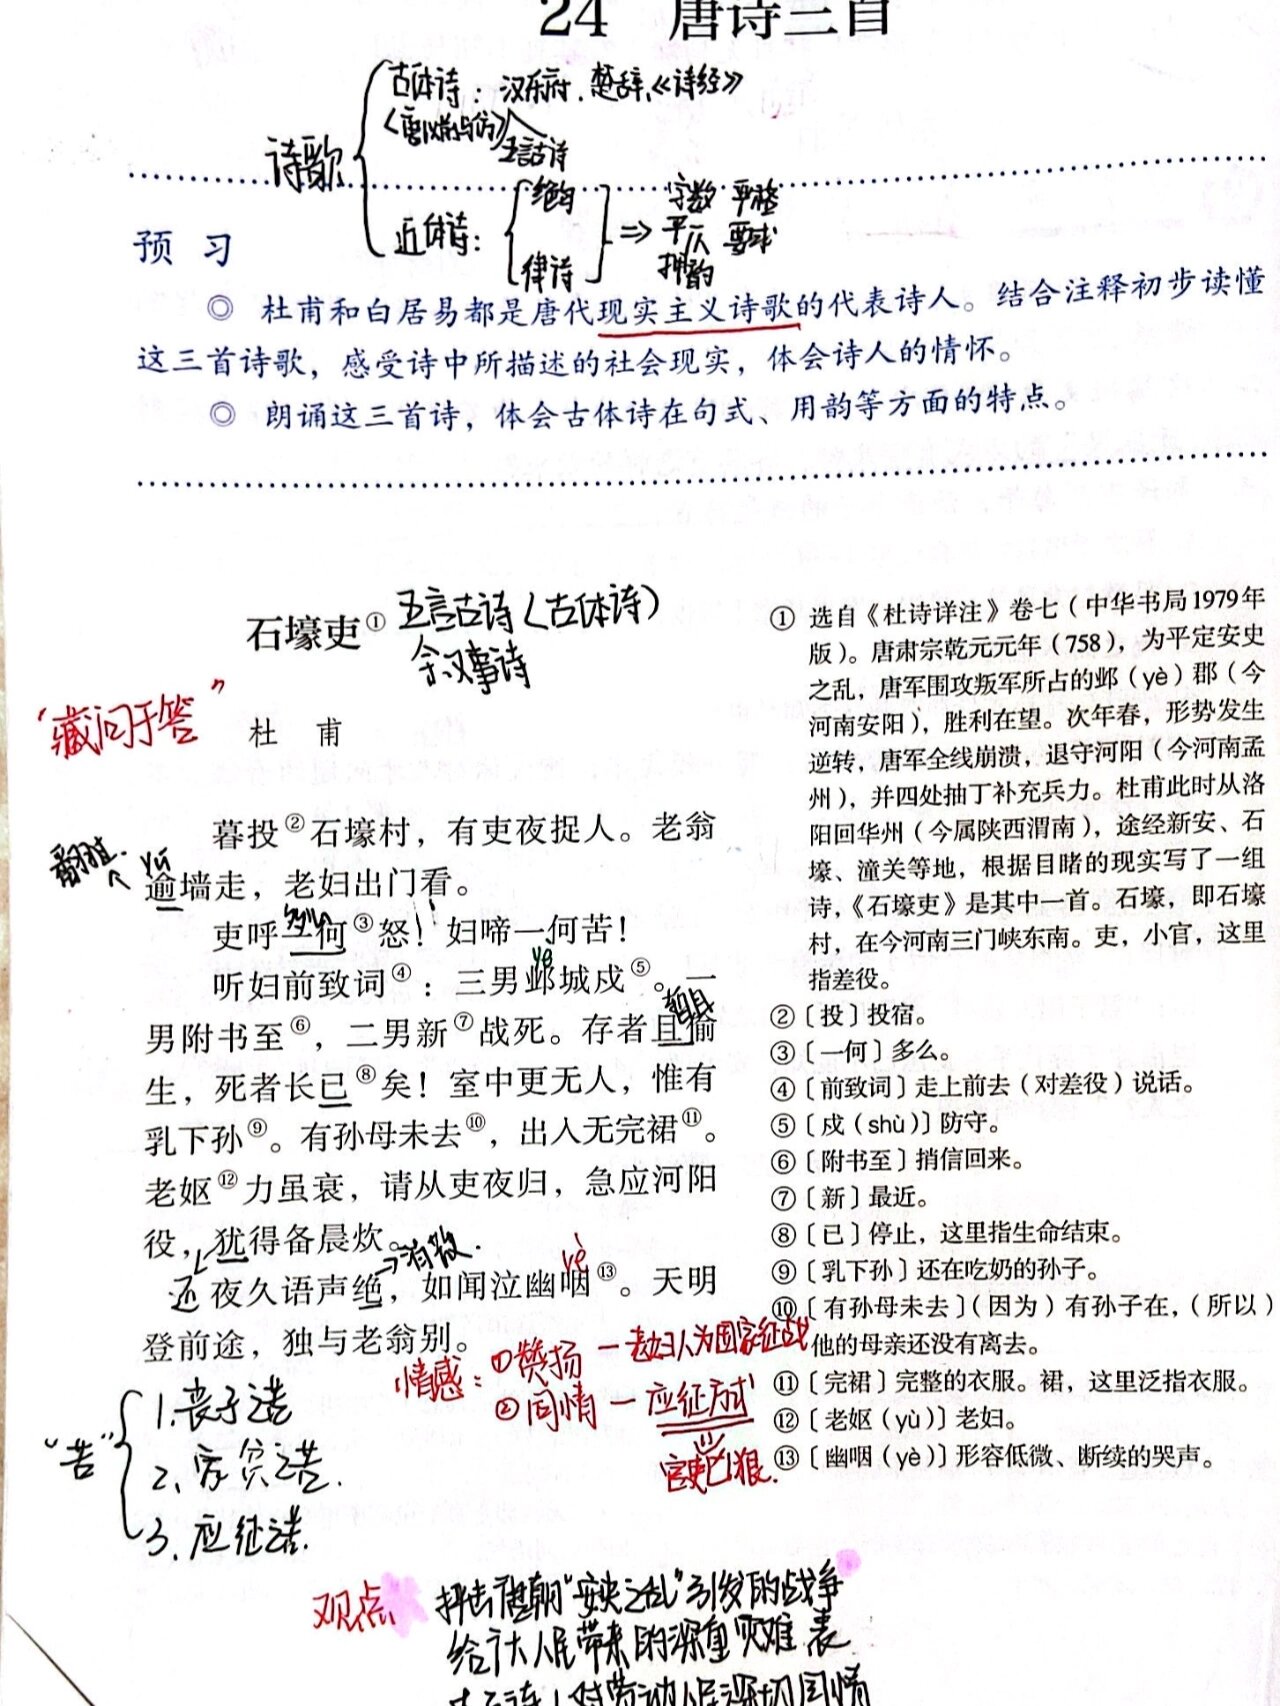 24 唐诗三首
诗歌
古体诗：汉乐府、楚辞、《诗经》
五言古诗
近体诗：
绝句
律诗
⇒
字数 严格
平仄 要求
押韵
预 习
◎ 杜甫和白居易都是唐代现实主义诗歌的代表诗人。结合注释初步读懂
这三首诗歌，感受诗中所描述的社会现实，体会诗人的情怀。
◎ 朗诵这三首诗，体会古体诗在句式、用韵等方面的特点。
石壕吏①
五言古诗（古体诗）
“藏问于答”
杜 甫
暮投②石壕村，有吏夜捉人。老翁
yú
逾墙走，老妇出门看。
吏呼一何③怒！妇啼一何苦！
yè
听妇前致词④：三男邺城戍⑤。一
男附书至⑥，二男新⑦战死。存者且偷
暂且
生，死者长已⑧矣！室中更无人，惟有
乳下孙⑨。有孙母未去⑩，出入无完裙⑪。
老妪⑫力虽衰，请从吏夜归，急应河阳
役，犹得备晨炊。
还
消散
yè
夜久语声绝，如闻泣幽咽⑬。天明
登前途，独与老翁别。
情感：①赞扬—老妇人为国家征战
②同情—应征方式
官吏凶狠
“苦”
1.丧子之苦
2、家贫之苦.
3、应征之苦.
观点
抨击唐朝“安史之乱”引发的战争
给广大人民带来的深重灾难 表
① 选自《杜诗详注》卷七（中华书局1979年
版）。唐肃宗乾元元年（758），为平定安史
之乱，唐军围攻叛军所占的邺（yè）郡（今
河南安阳），胜利在望。次年春，形势发生
逆转，唐军全线崩溃，退守河阳（今河南孟
州），并四处抽丁补充兵力。杜甫此时从洛
阳回华州（今属陕西渭南），途经新安、石
壕、潼关等地，根据目睹的现实写了一组
诗，《石壕吏》是其中一首。石壕，即石壕
村，在今河南三门峡东南。吏，小官，这里
指差役。
②〔投〕投宿。
③〔一何〕多么。
④〔前致词〕走上前去（对差役）说话。
⑤〔戍（shù）〕防守。
⑥〔附书至〕捎信回来。
⑦〔新〕最近。
⑧〔已〕停止，这里指生命结束。
⑨〔乳下孙〕还在吃奶的孙子。
⑩〔有孙母未去〕（因为）有孙子在，（所以）
他的母亲还没有离去。
⑪〔完裙〕完整的衣服。裙，这里泛指衣服。
⑫〔老妪（yù）〕老妇。
⑬〔幽咽（yè）〕形容低微、断续的哭声。